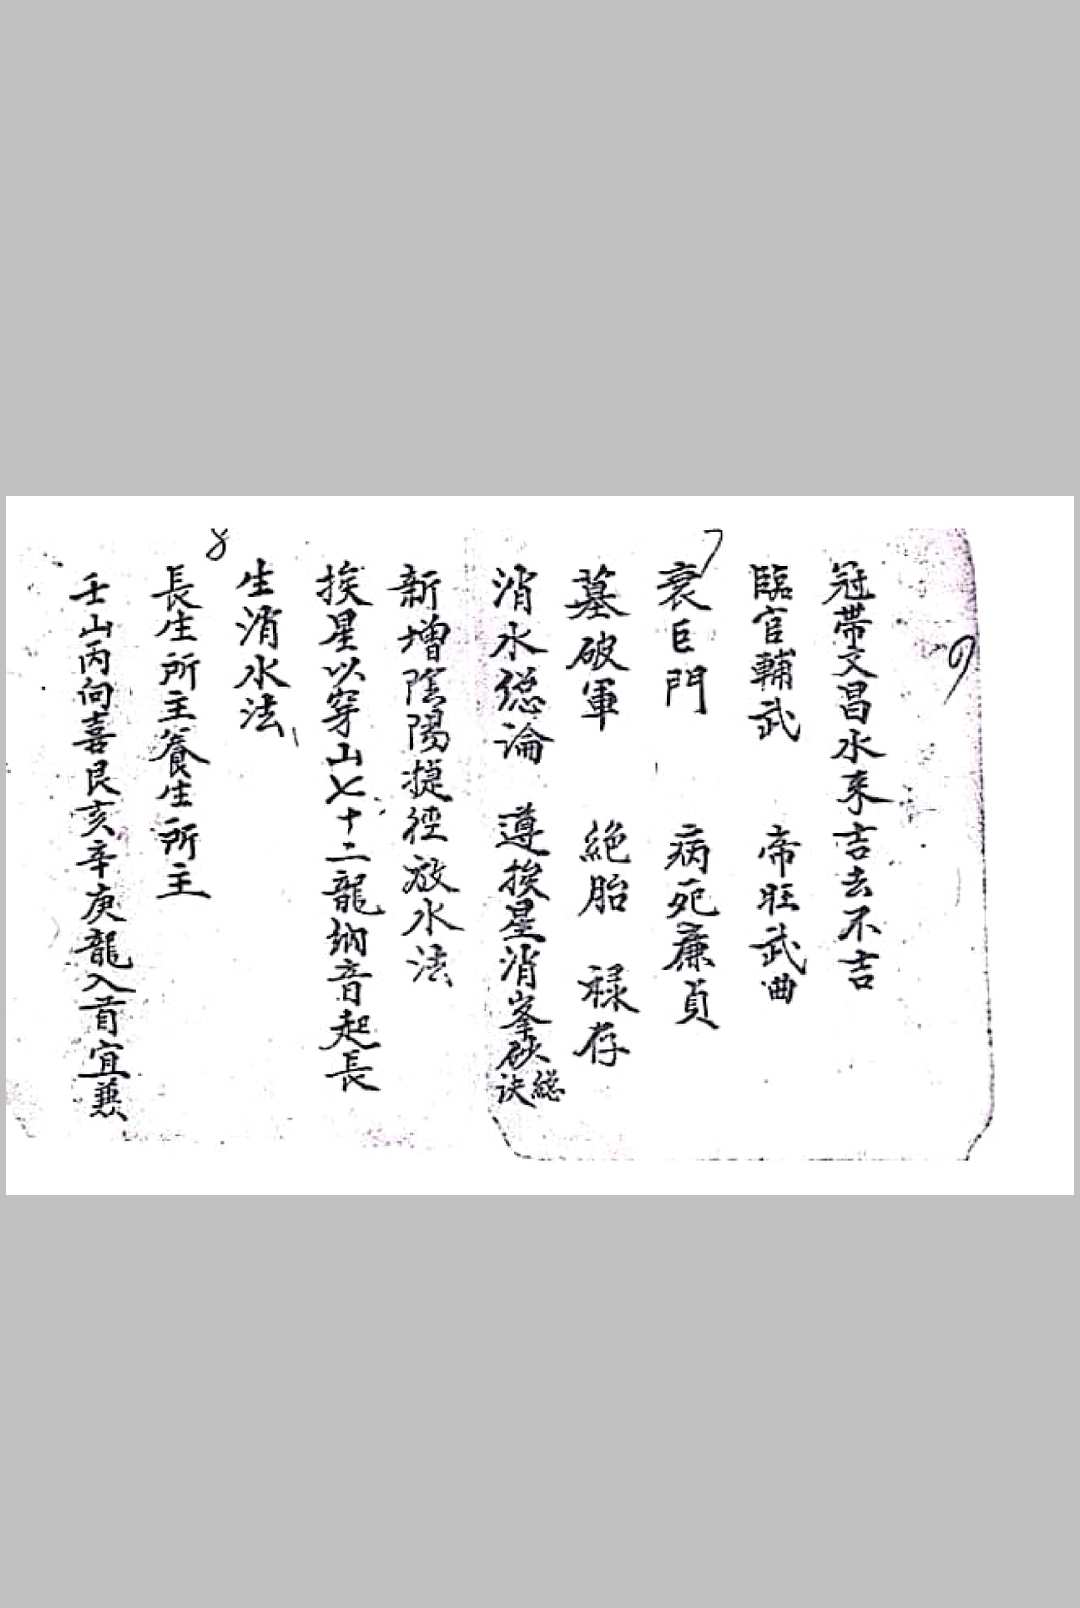 冠帶文昌水来吉去不吉
臨官輔武　帝旺武曲
衰巨門　病死廉貞
墓破軍　絶胎　禄存
消水総論　遵挨星消峯砂総訣
新增陰陽捷徑放水法
挨星以穿山七十二龍納音起長
生消水法
長生所主養生所主
壬山丙向喜艮亥辛庚龍入首宜兼
7
8